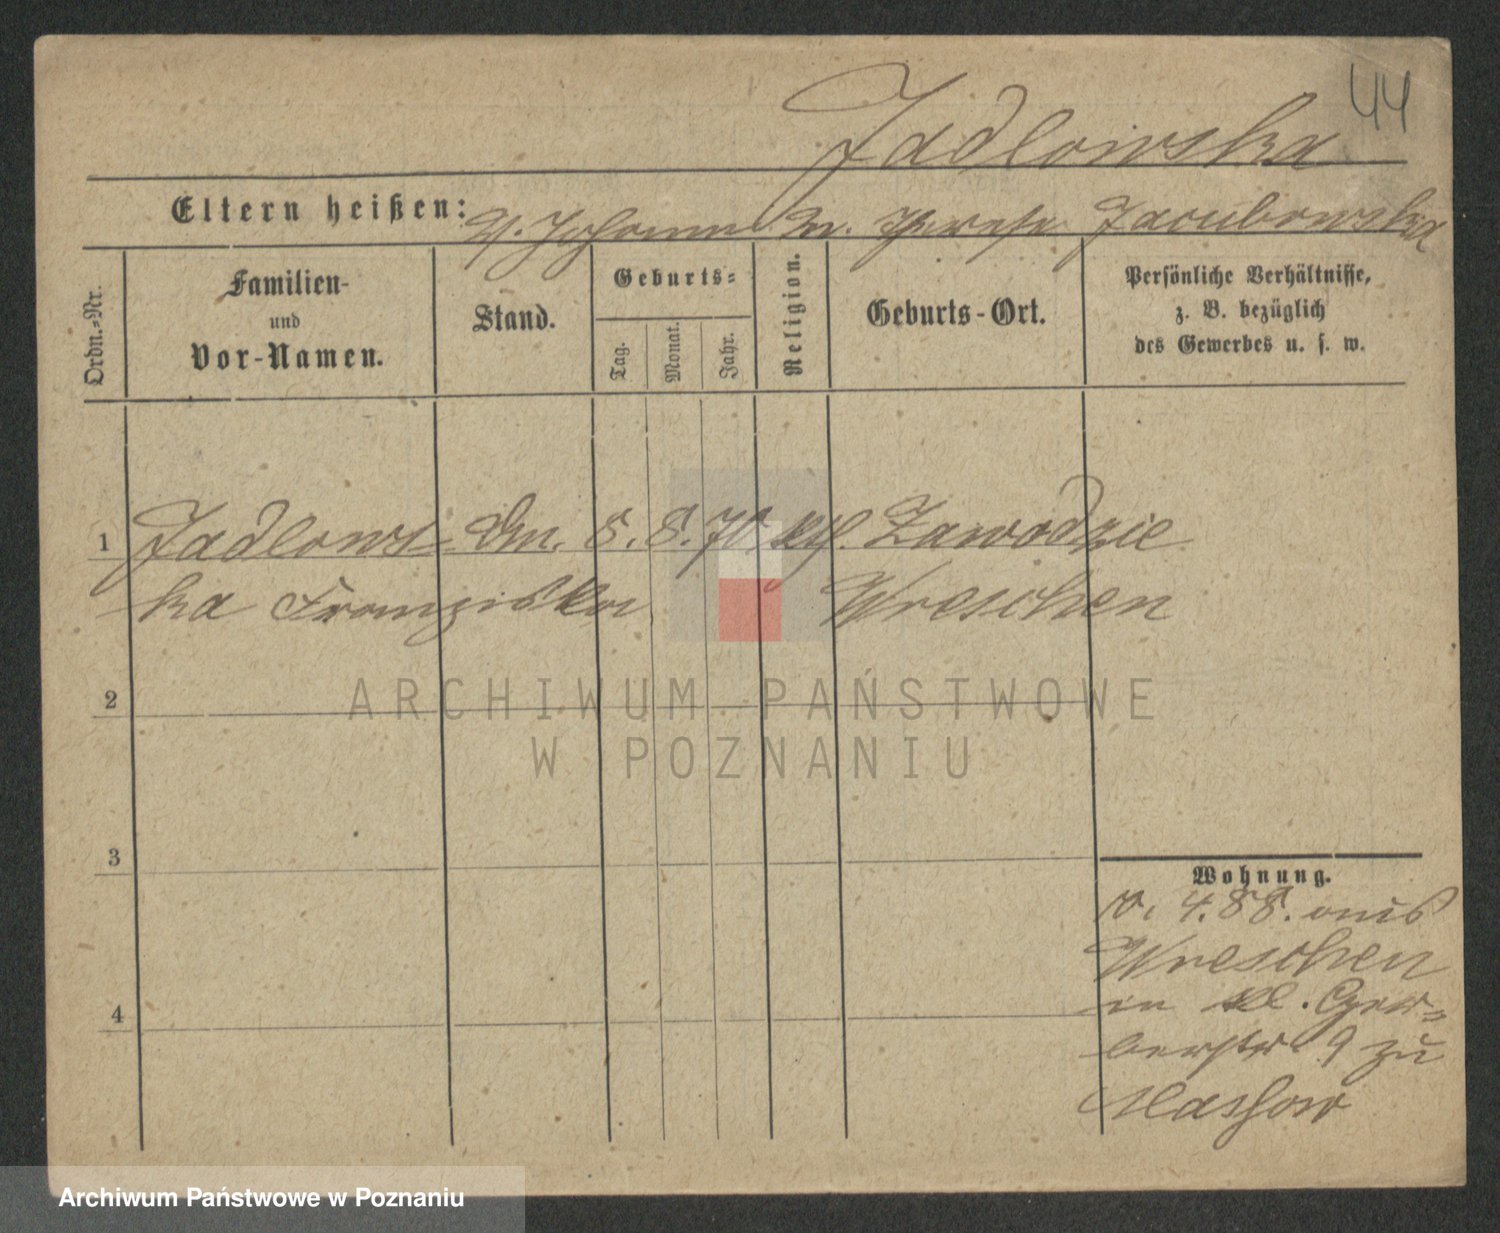 44
Jadlowska
Eltern heißen: V. Johann M. Therese Jacubowska
Ordn.-Nr.
Familien-
und
Vor-Namen.
Stand.
Geburts-
Tag.
Monat.
Jahr.
Religion.
Geburts-Ort.
Persönliche Verhältnisse,
z. B. bezüglich
des Gewerbes u. s. w.
1 Jadlows- Dm. 8. 8. 70. kth. Zawodzie
ka Franziska Wreschen
2
3
4
Wohnung.
10. 4. 88. aus
Wreschen
in kl. Ger-
berstr 9 zu
ARCHIWUM PAŃSTWOWE
W POZNANIU
Archiwum Państwowe w Poznaniu